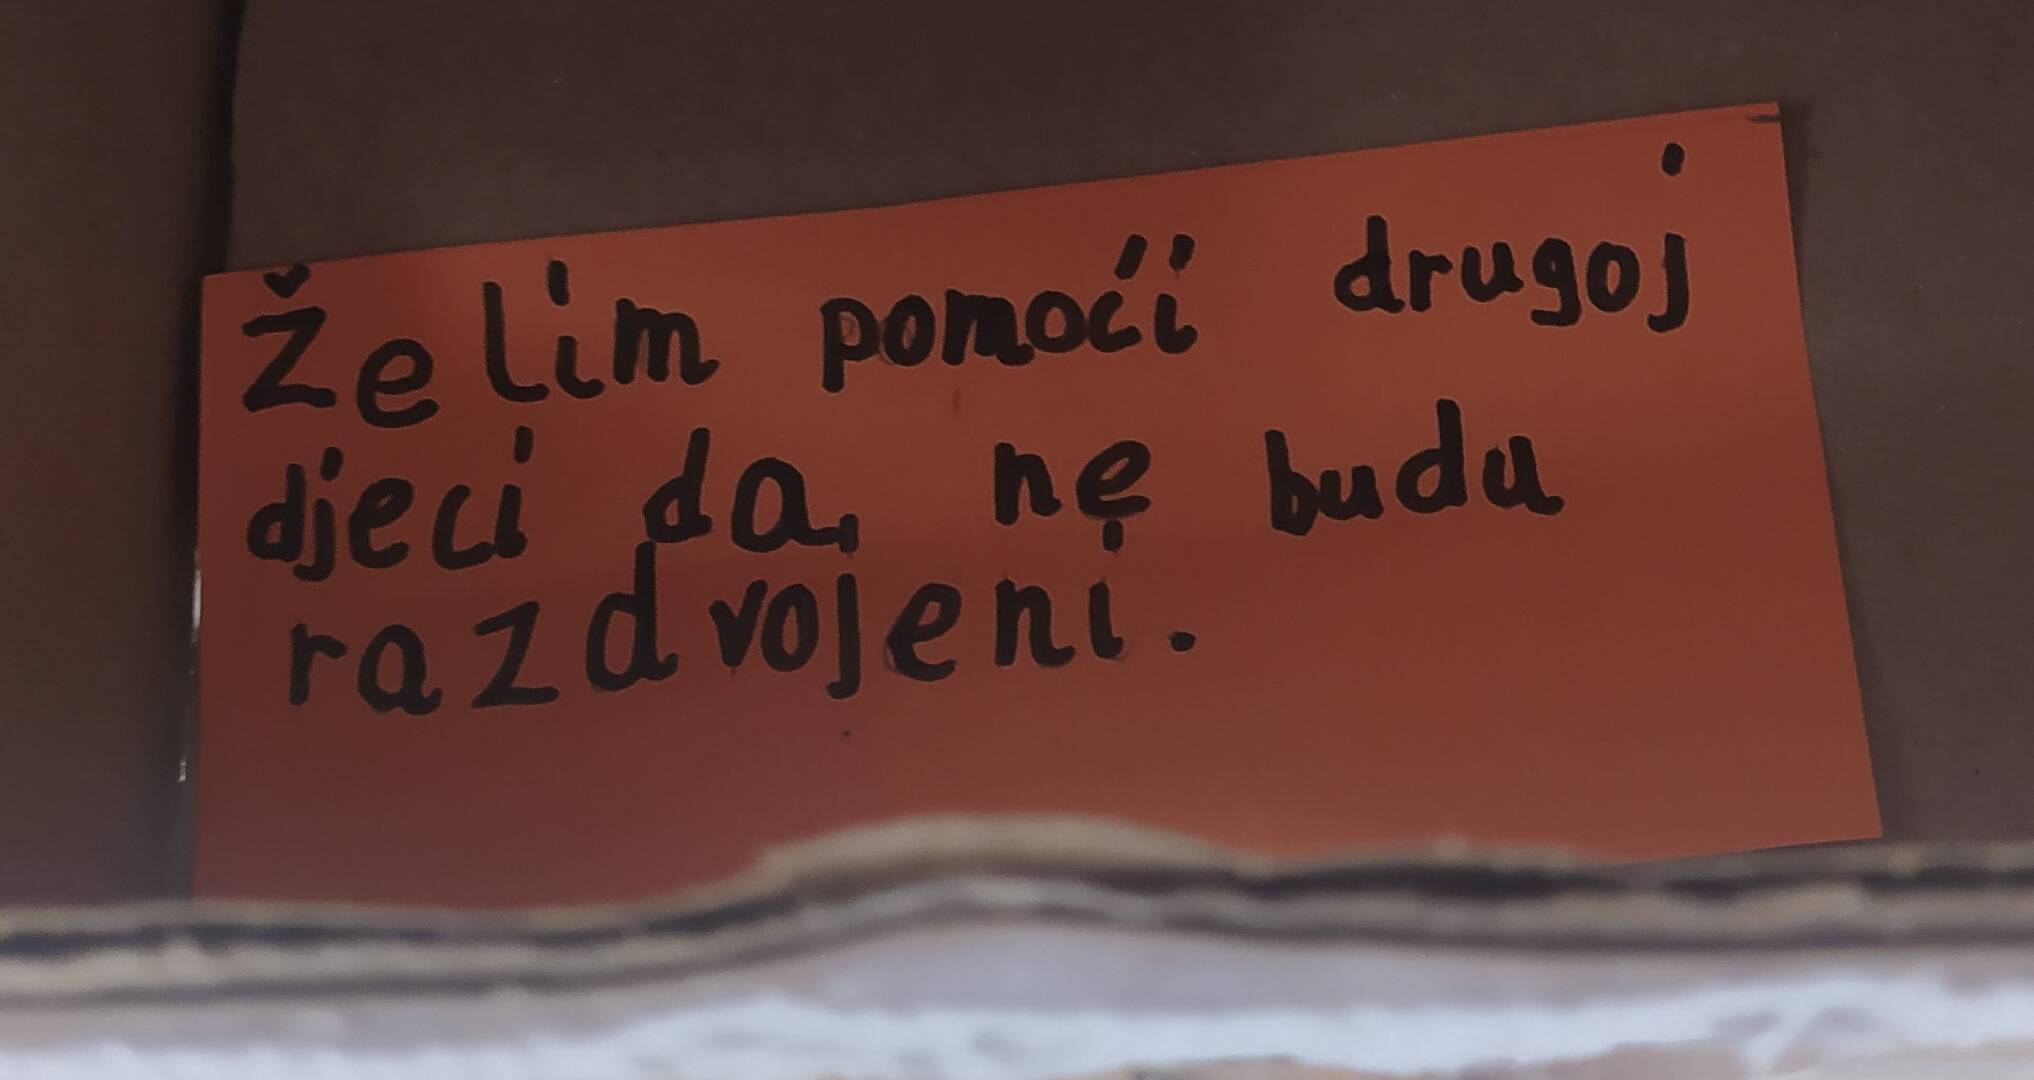 Želim pomoći drugoj
djeci da, ne budu
razdvojeni.